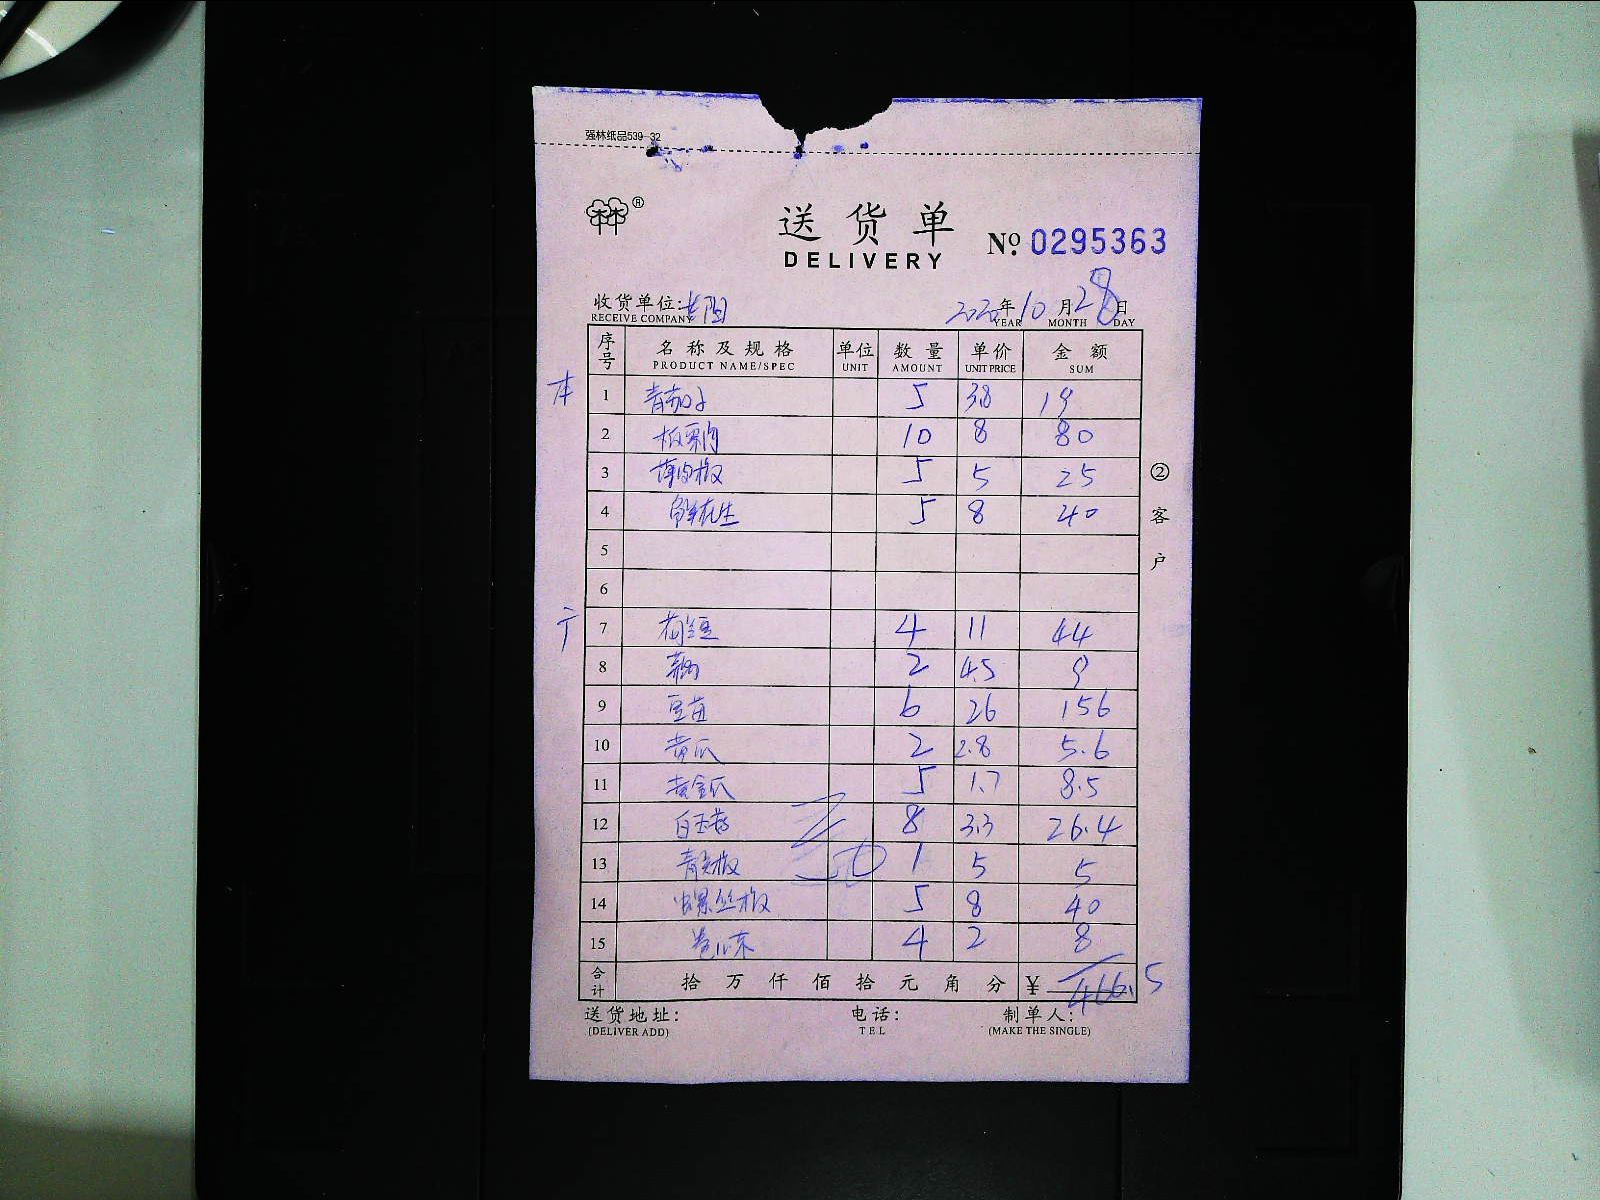 强林纸品539-32
林林®
送货单
DELIVERY
No. 0295363
收货单位: 2020年10月28日
RECEIVE COMPANY YEAR MONTH DAY
序号 名称及规格 单位 数量 单价 金额
PRODUCT NAME/SPEC UNIT AMOUNT UNIT PRICE SUM
本 1 青茄子 5 3.8 19
2 板栗肉 10 8 80
3 薄肉椒 5 5 25
4 鲜花生 5 8 40
5
6
7 荷兰豆 4 11 44
8 2 4.5 9
9 豆苗 6 26 156
10 黄瓜 2 2.8 5.6
11 黄金瓜 5 1.7 8.5
12 白玉菇 8 3.3 26.4
13 青尖椒 1 5 5
14 螺丝椒 5 8 40
15 4 2 8
合计 拾万仟佰拾元角分 ¥ 466.5
送货地址: 电话: 制单人:
(DELIVER ADD) TEL (MAKE THE SINGLE)
②客户